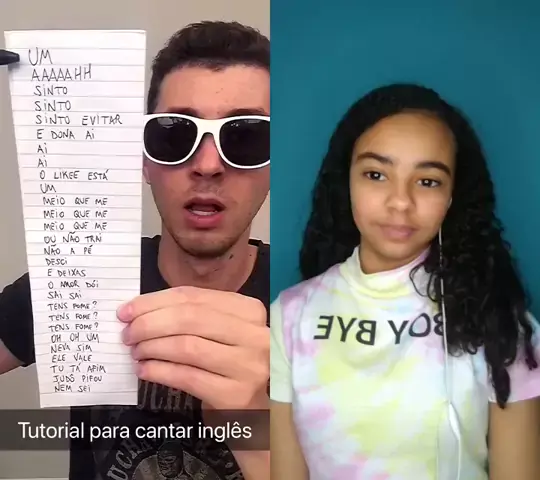 UM
AAAAAHH
SINTO
SINTO
SINTO EVITAR
E DONA AÍ
AÍ
AÍ
O LIKEE ESTÁ
UM
MEIO QUE ME
MEIO QUE ME
MEIO QUE ME
OU NÃO TRAI
NÃO A PÉ
DESCI
E DEIXAS
O AMOR DÓI
SAI SAI
TENS FOME?
TENS FOME?
TENS FOME?
OH OH UM
NEVA SIM
ELE VALE
TU TÁ APIM
JUDÔ PIFOU
NEM SEI
Tutorial para cantar inglês
BOY BYE